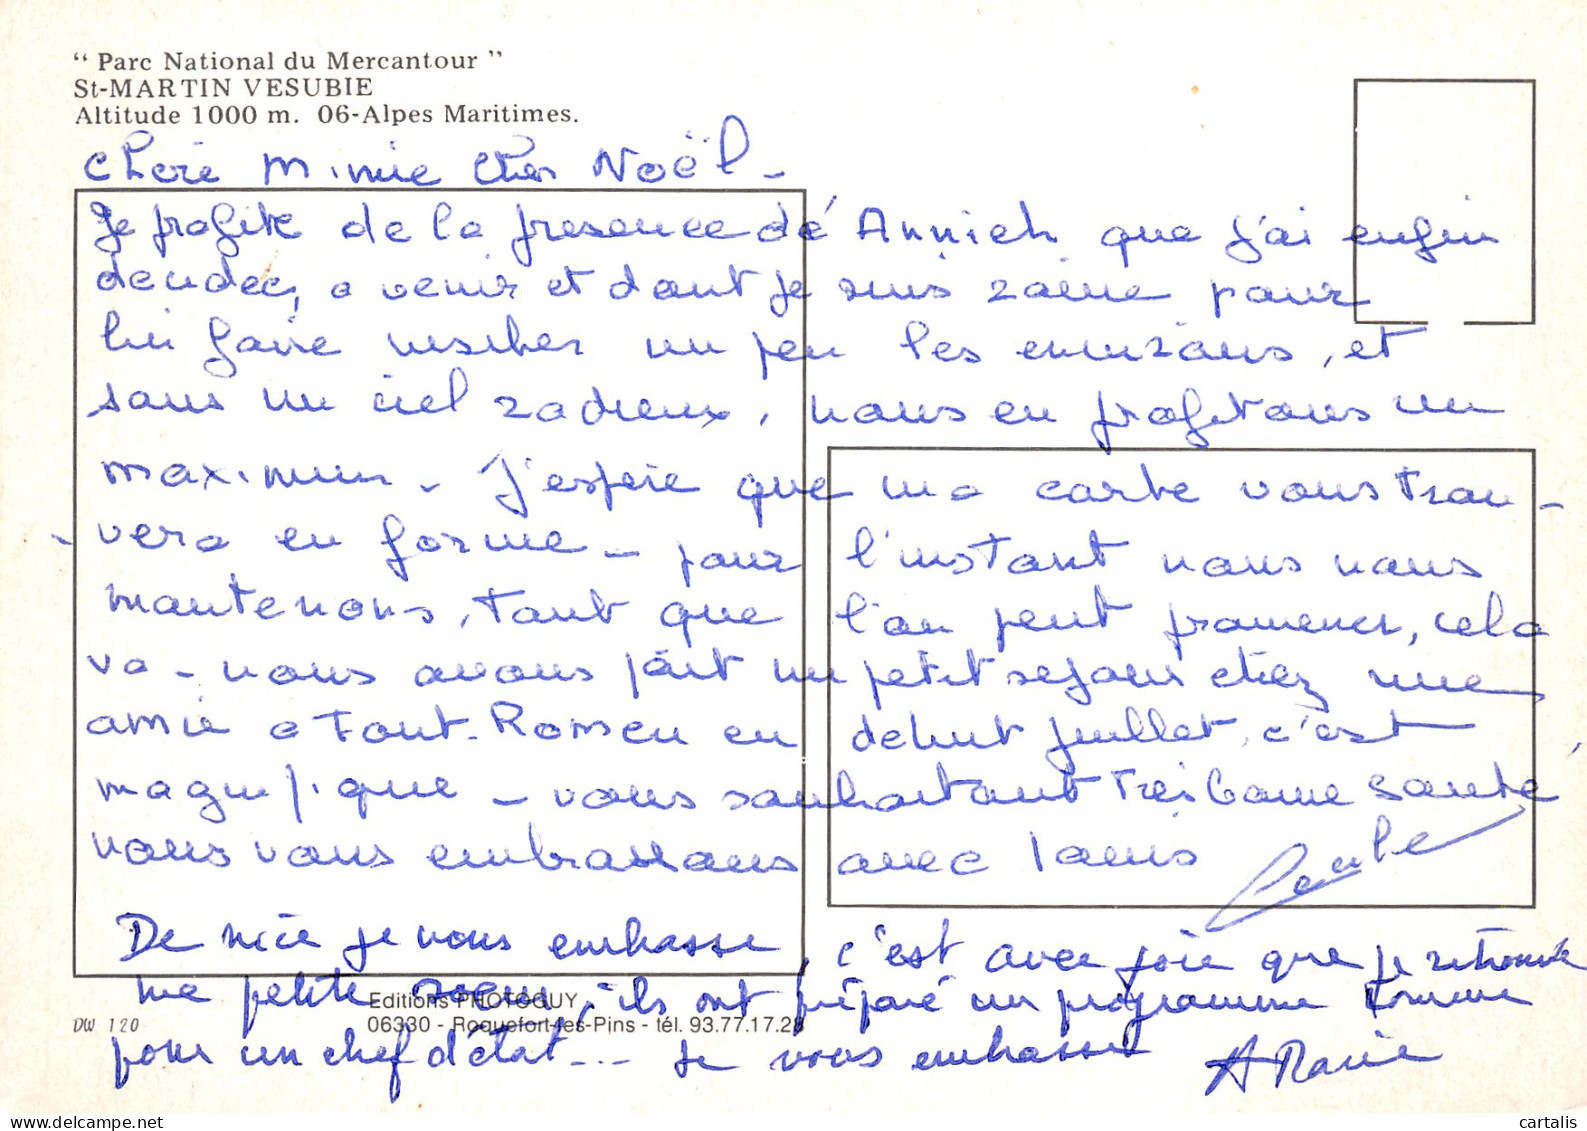 “ Parc National du Mercantour ”
St-MARTIN VESUBIE
Altitude 1000 m. 06-Alpes Maritimes.
Chère Mimie Cher Noël -
Je profite de la presence de Annick que j'ai enfin
decidée, a venir et dont je suis raine pour
lui faire visiter un peu les environs, et
sans un ciel radieux, nous en profitons un
maximum - J'espère que ma carte vous trou -
- vera en forme - pour l'instant nous nous
maintenons, tant que l'on peut promener, cela
va - nous avons fait un petit sejour chez une
amie a Font-Romeu en debut juillet, c'est
magnifique - vous souhaitant très bonne santé
nous vous embrassons avec Louis
De Nice je vous embrasse, c'est avec joie que je retrouve
ma petite soeur, ils ont préparé un programme comme
pour un chef d'état... Je vous embrasse A Marie
Editions PHOTOGUY
06330 - Roquefort-les-Pins - tél. 93.77.17.28
DW 120
cartalis